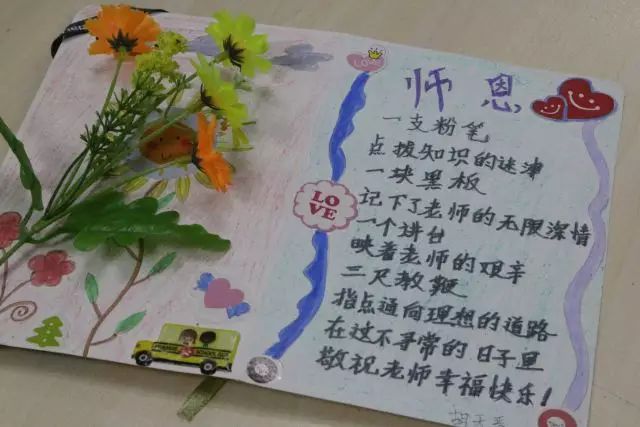 师 恩
一支粉笔
点拨知识的迷津
一块黑板
记下了老师的无限深情
一个讲台
映着老师的艰辛
三尺教鞭
指点通向理想的道路
在这不寻常的日子里
敬祝老师幸福快乐!
LOVE
LO
VE